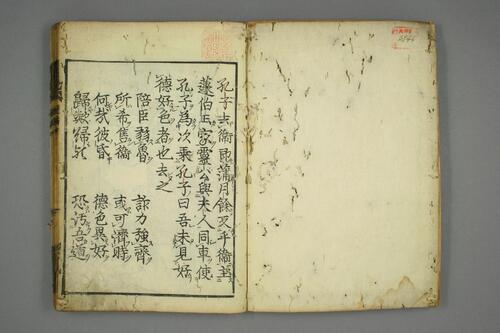 孔子去衛即蒲月餘反乎衛主
蘧伯玉家靈公與夫人同車使
孔子為次乘孔子曰吾未見好
德好色者也去之
陪臣弱魯 諒力強齊
所希售衛 或可濟時
何哉彼昏 德色異好
歸歟歸歟 恐汚吾道